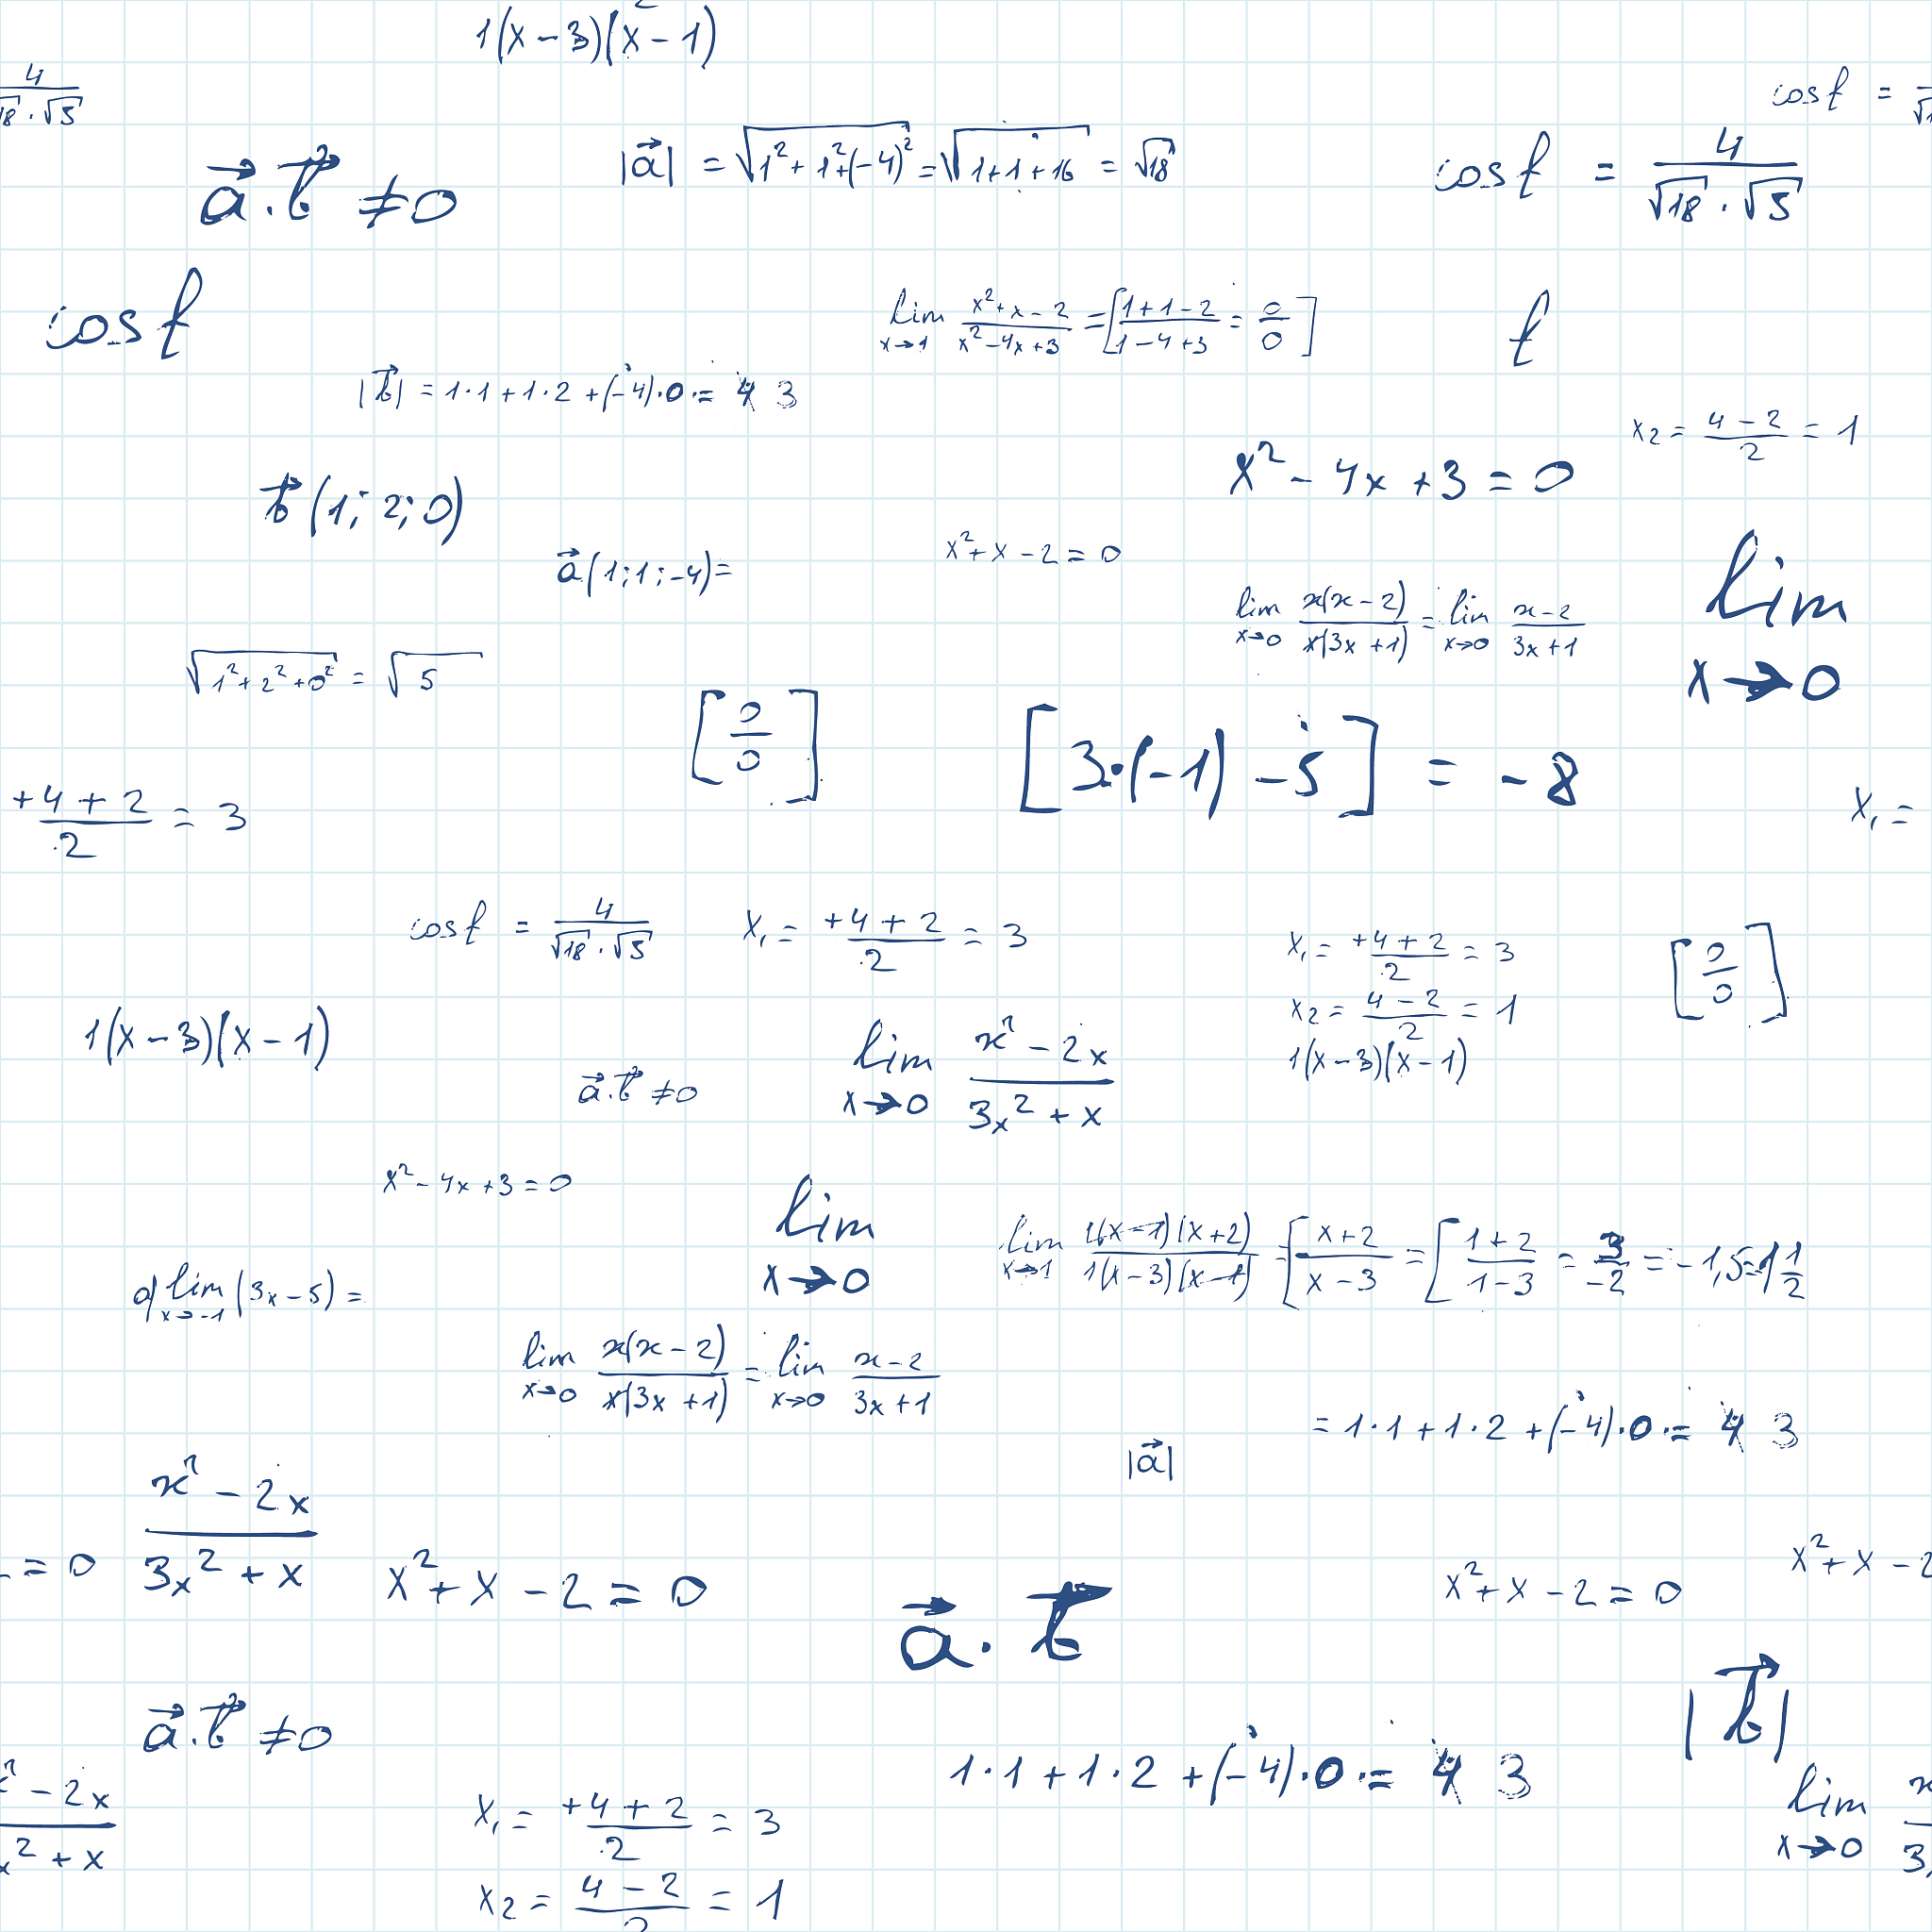 1(x-3)(x-1)
4/(√18·√5)
cos f =
a⃗.b⃗ ≠0
|a⃗| = √(1²+1²+(-4)²) = √(1+1+16) = √18
cos f = 4/(√18·√5)
cos f
lim x→1 (x²+x-2)/(x²-4x+3) = [(1+1-2)/(1-4+3) = 0/0]
f
|b⃗| = 1·1+1·2+(-4)·0·= 4 3
x2 = (4-2)/2 = 1
x²-4x+3=0
b⃗(1;2;0)
a⃗(1;1;-4)=
x²+x-2=0
lim x→0 x(x-2)/x(3x+1) = lim x→0 (x-2)/(3x+1)
lim x→0
√(1²+2²+0²) = √5
[0/0]
[3·(-1)-5] = -8
(+4+2)/2 = 3
x1 =
cos f = 4/(√18·√5)
x1 = (+4+2)/2 = 3
x1 = (+4+2)/2 = 3
x2 = (4-2)/2 = 1
1(x-3)(x-1)
[0/0]
1(x-3)(x-1)
a⃗.b⃗ ≠0
lim x→0 (x²-2x)/(3x²+x)
x²-4x+3=0
lim x→0
lim x→1 1(x-1)(x+2)/1(x-3)(x-1) = [(x+2)/(x-3) = [(1+2)/(1-3) = 3/-2 = -1,5=1 1/2
a) lim x→-1 (3x-5) =
lim x→0 x(x-2)/x(3x+1) = lim x→0 (x-2)/(3x+1)
= 1·1+1·2+(-4)·0·= 4 3
|a⃗|
= 0
(x²-2x)/(3x²+x)
x²+x-2=0
a⃗.b⃗
x²+x-2=0
x²+x-2
a⃗.b⃗ ≠0
|b⃗|
1·1+1·2+(-4)·0·= 4 3
x²-2x
x²+x
x1 = (+4+2)/2 = 3
x2 = (4-2)/2 = 1
lim x→0